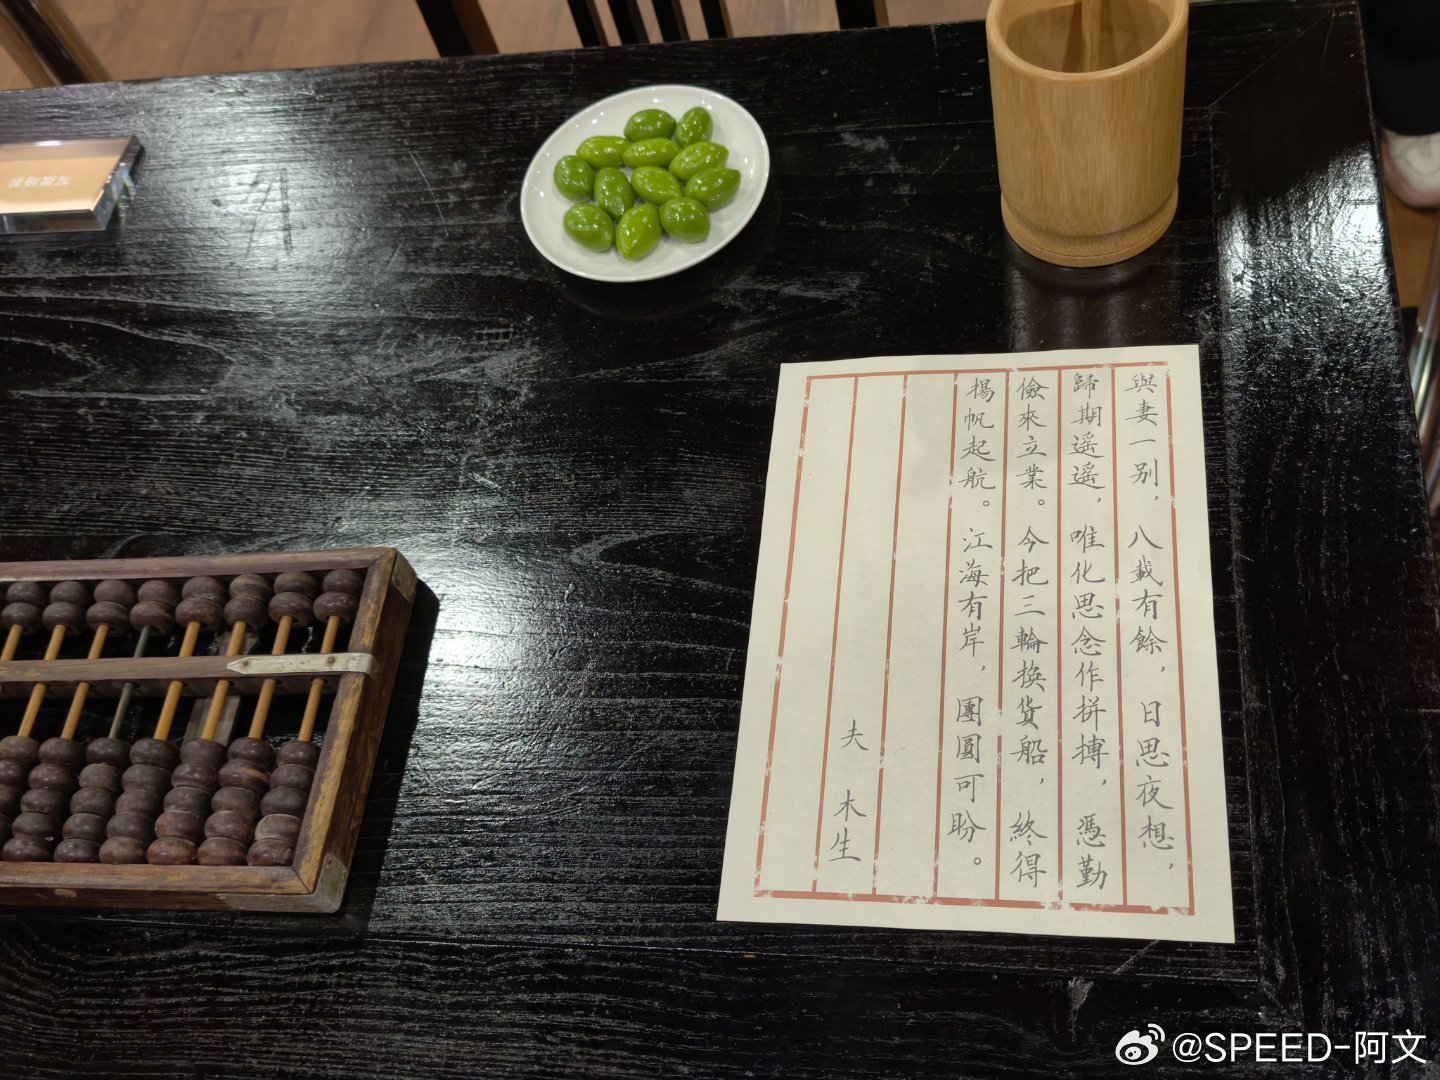 與妻一别，八載有餘，日思夜想，
歸期遥遥，唯化思念作拼搏，憑勤
儉來立業。今把三輪換貨船，終得
揚帆起航。江海有岸，團圓可盼。
夫 木生
@SPEED-阿文